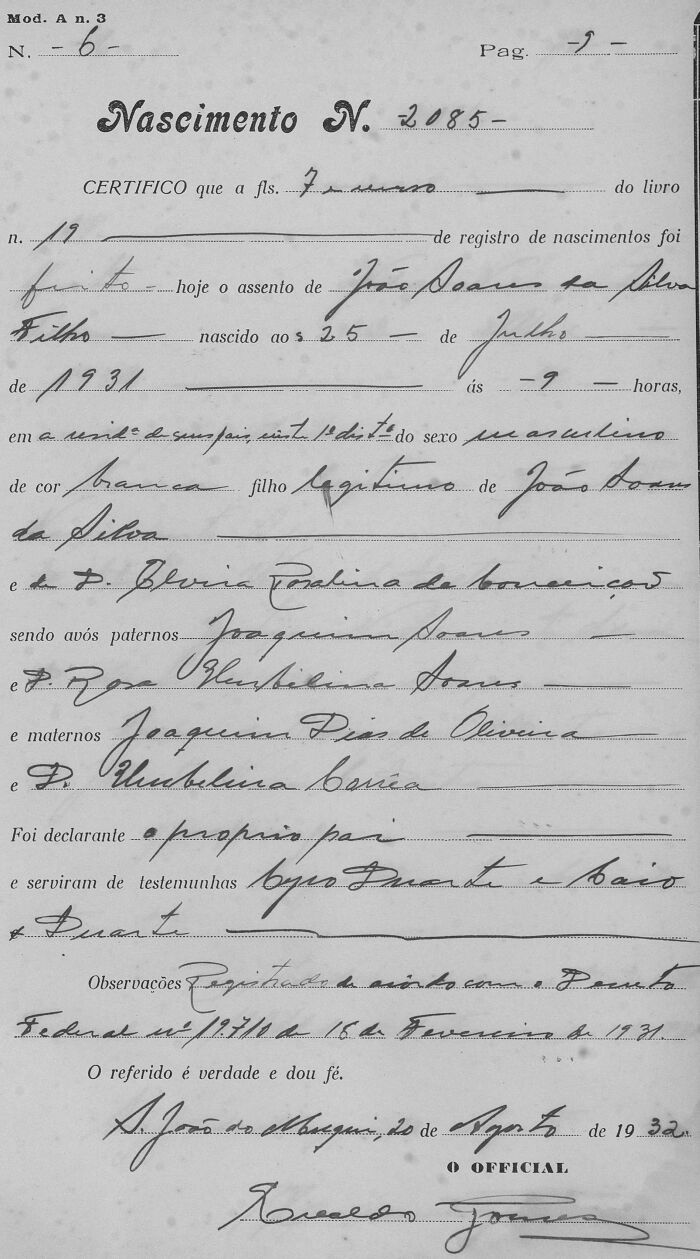 Mod. A n. 3
N. - 6 - Pag. - 9 -
Nascimento N. - 2085 -
CERTIFICO que a fls. 7 e verso do livro
n. 19 de registro de nascimentos foi
feito - hoje o assento de João Soares da Silva
Filho nascido aos 25 - de Julho
de 1931 ás - 9 - horas,
em a resida de seus pais, neste 1º distº do sexo masculino
de cor branca filho legitimo de João Soares
da Silva
e de D. Elvira Rosalina da Conceição
sendo avós paternos Joaquim Soares
e D. Rosa Umbilina Soares
e maternos Joaquim Dias de Oliveira
e D. Umbilina Corrêa
Foi declarante o proprio pai
e serviram de testemunhas Cyro Duarte e Caio
Duarte
Observações Registrado de acôrdo com o Decreto
Federal nº 19.710 de 18 de Fevereiro de 1931.
O referido é verdade e dou fé.
S. João do Muqui, 20 de Agosto de 1932.
O OFFICIAL
Gomes